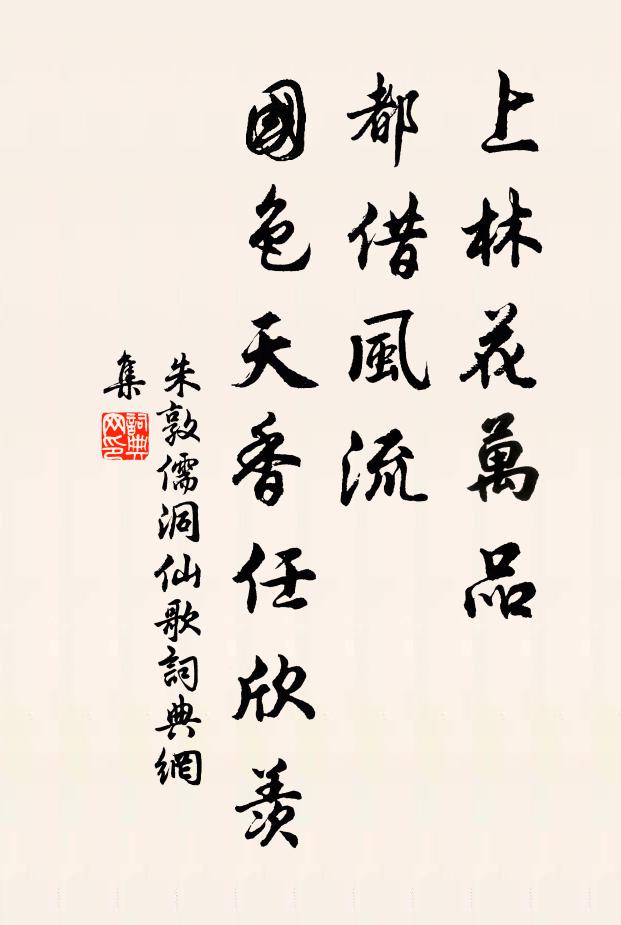 上林花萬品
都借風流
國色天香任欣羨
朱敦儒洞仙歌詞典網
集
詞典
网印